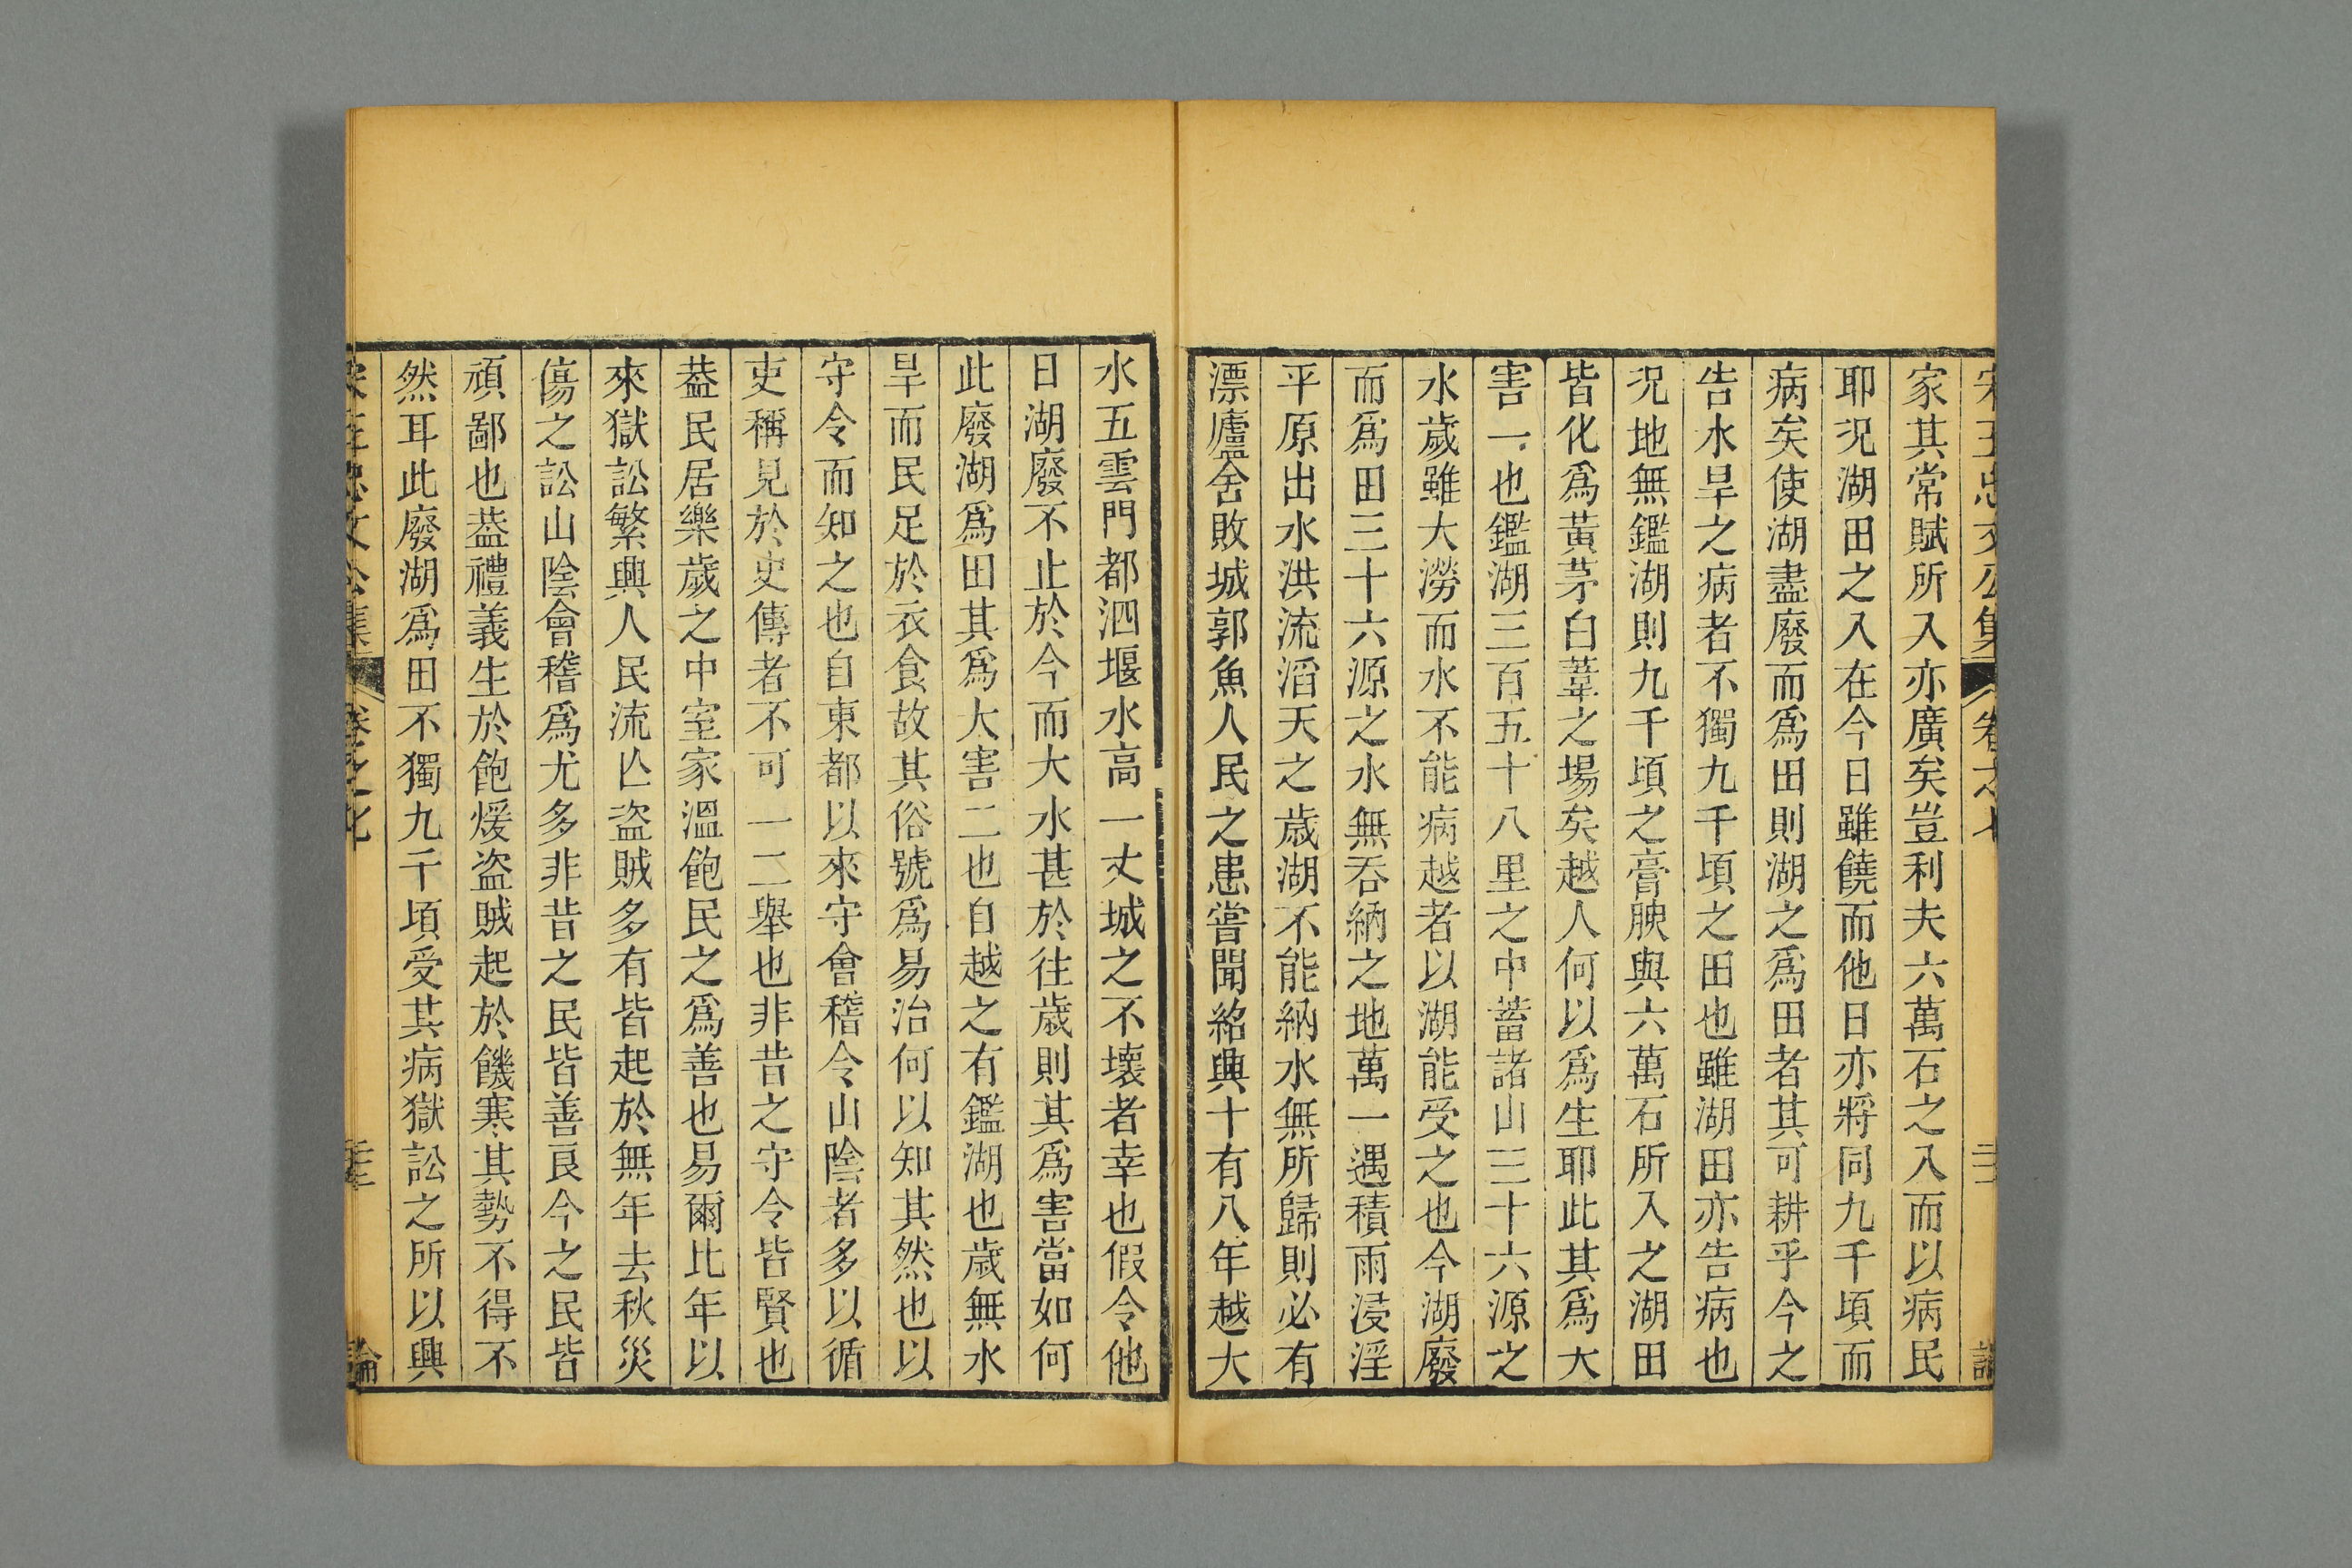 家其常賦所入亦廣矣豈利夫六萬石之入而以病民
耶況湖田之入在今日雖饒而他日亦將同九千頃而
病矣使湖盡廢而爲田則湖之爲田者其可耕乎今之
告水旱之病者不獨九千頃之田也雖湖田亦告病也
況地無鑑湖則九千頃之膏腴與六萬石所入之湖田
皆化爲黃茅白葦之場矣越人何以爲生耶此其爲大
害一也鑑湖三百五十八里之中蓄諸山三十六源之
水歲雖大澇而水不能病越者以湖能受之也今湖廢
而爲田三十六源之水無吞納之地萬一遇積雨浸淫
平原出水洪流滔天之歲湖不能納水無所歸則必有
漂廬舍敗城郭魚人民之患嘗聞紹興十有八年越大
水五雲門都泗堰水高一丈城之不壞者幸也假令他
日湖廢不止於今而大水甚於往歲則其爲害當如何
此廢湖爲田其爲大害二也自越之有鑑湖也歲無水
旱而民足於衣食故其俗號爲易治何以知其然也以
守令而知之也自東都以來守會稽令山陰者多以循
吏稱見於史傳者不可一二舉也非昔之守令皆賢也
葢民居樂歲之中室家溫飽民之爲善也易爾比年以
來獄訟繁興人民流亾盜賊多有皆起於無年去秋災
傷之訟山陰會稽爲尤多非昔之民皆善良今之民皆
頑鄙也葢禮義生於飽煖盜賊起於饑寒其勢不得不
然耳此廢湖爲田不獨九千頃受其病獄訟之所以興